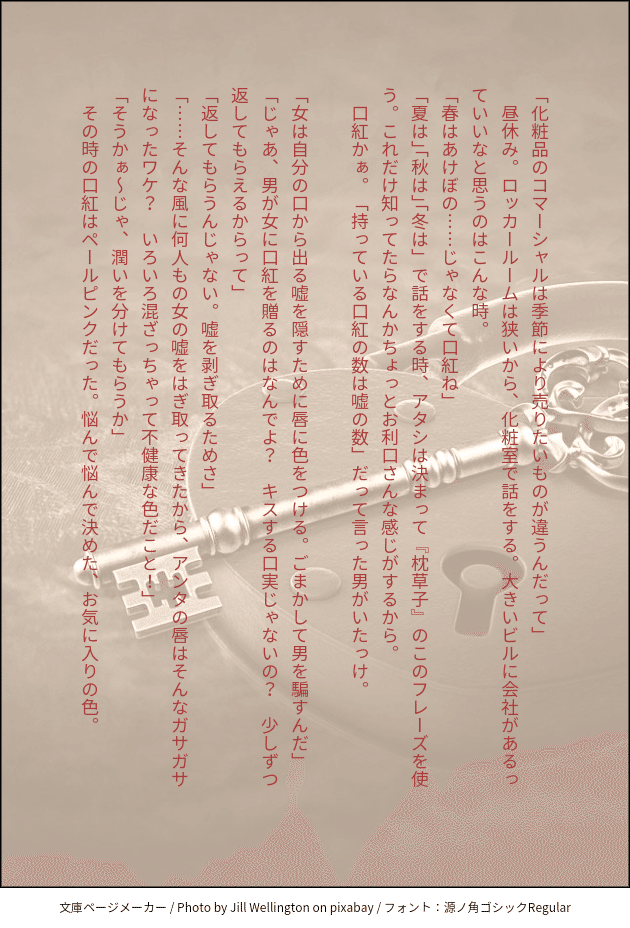 「化粧品のコマーシャルは季節により売りたいものが違うんだって」
昼休み。ロッカールームは狭いから、化粧室で話をする。大きいビルに会社があるっ
ていいなと思うのはこんな時。
「春はあけぼの……じゃなくて口紅ね」
「夏は」「秋は」「冬は」で話をする時、アタシは決まって『枕草子』のこのフレーズを使
う。これだけ知ってたらなんかちょっとお利口さんな感じがするから。
口紅かぁ。「持っている口紅の数は嘘の数」だって言った男がいたっけ。
「女は自分の口から出る嘘を隠すために唇に色をつける。ごまかして男を騙すんだ」
「じゃあ、男が女に口紅を贈るのはなんでよ?　キスする口実じゃないの?　少しずつ
返してもらえるからって」
「返してもらうんじゃない。嘘を剥ぎ取るためさ」
「……そんな風に何人もの女の嘘をはぎ取ってきたから、アンタの唇はそんなガサガサ
になったワケ?　いろいろ混ざっちゃって不健康な色だこと!」
「そうかぁ〜じゃ、潤いを分けてもらうか」
その時の口紅はペールピンクだった。悩んで悩んで決めた、お気に入りの色。
文庫ページメーカー / Photo by Jill Wellington on pixabay / フォント：源ノ角ゴシックRegular